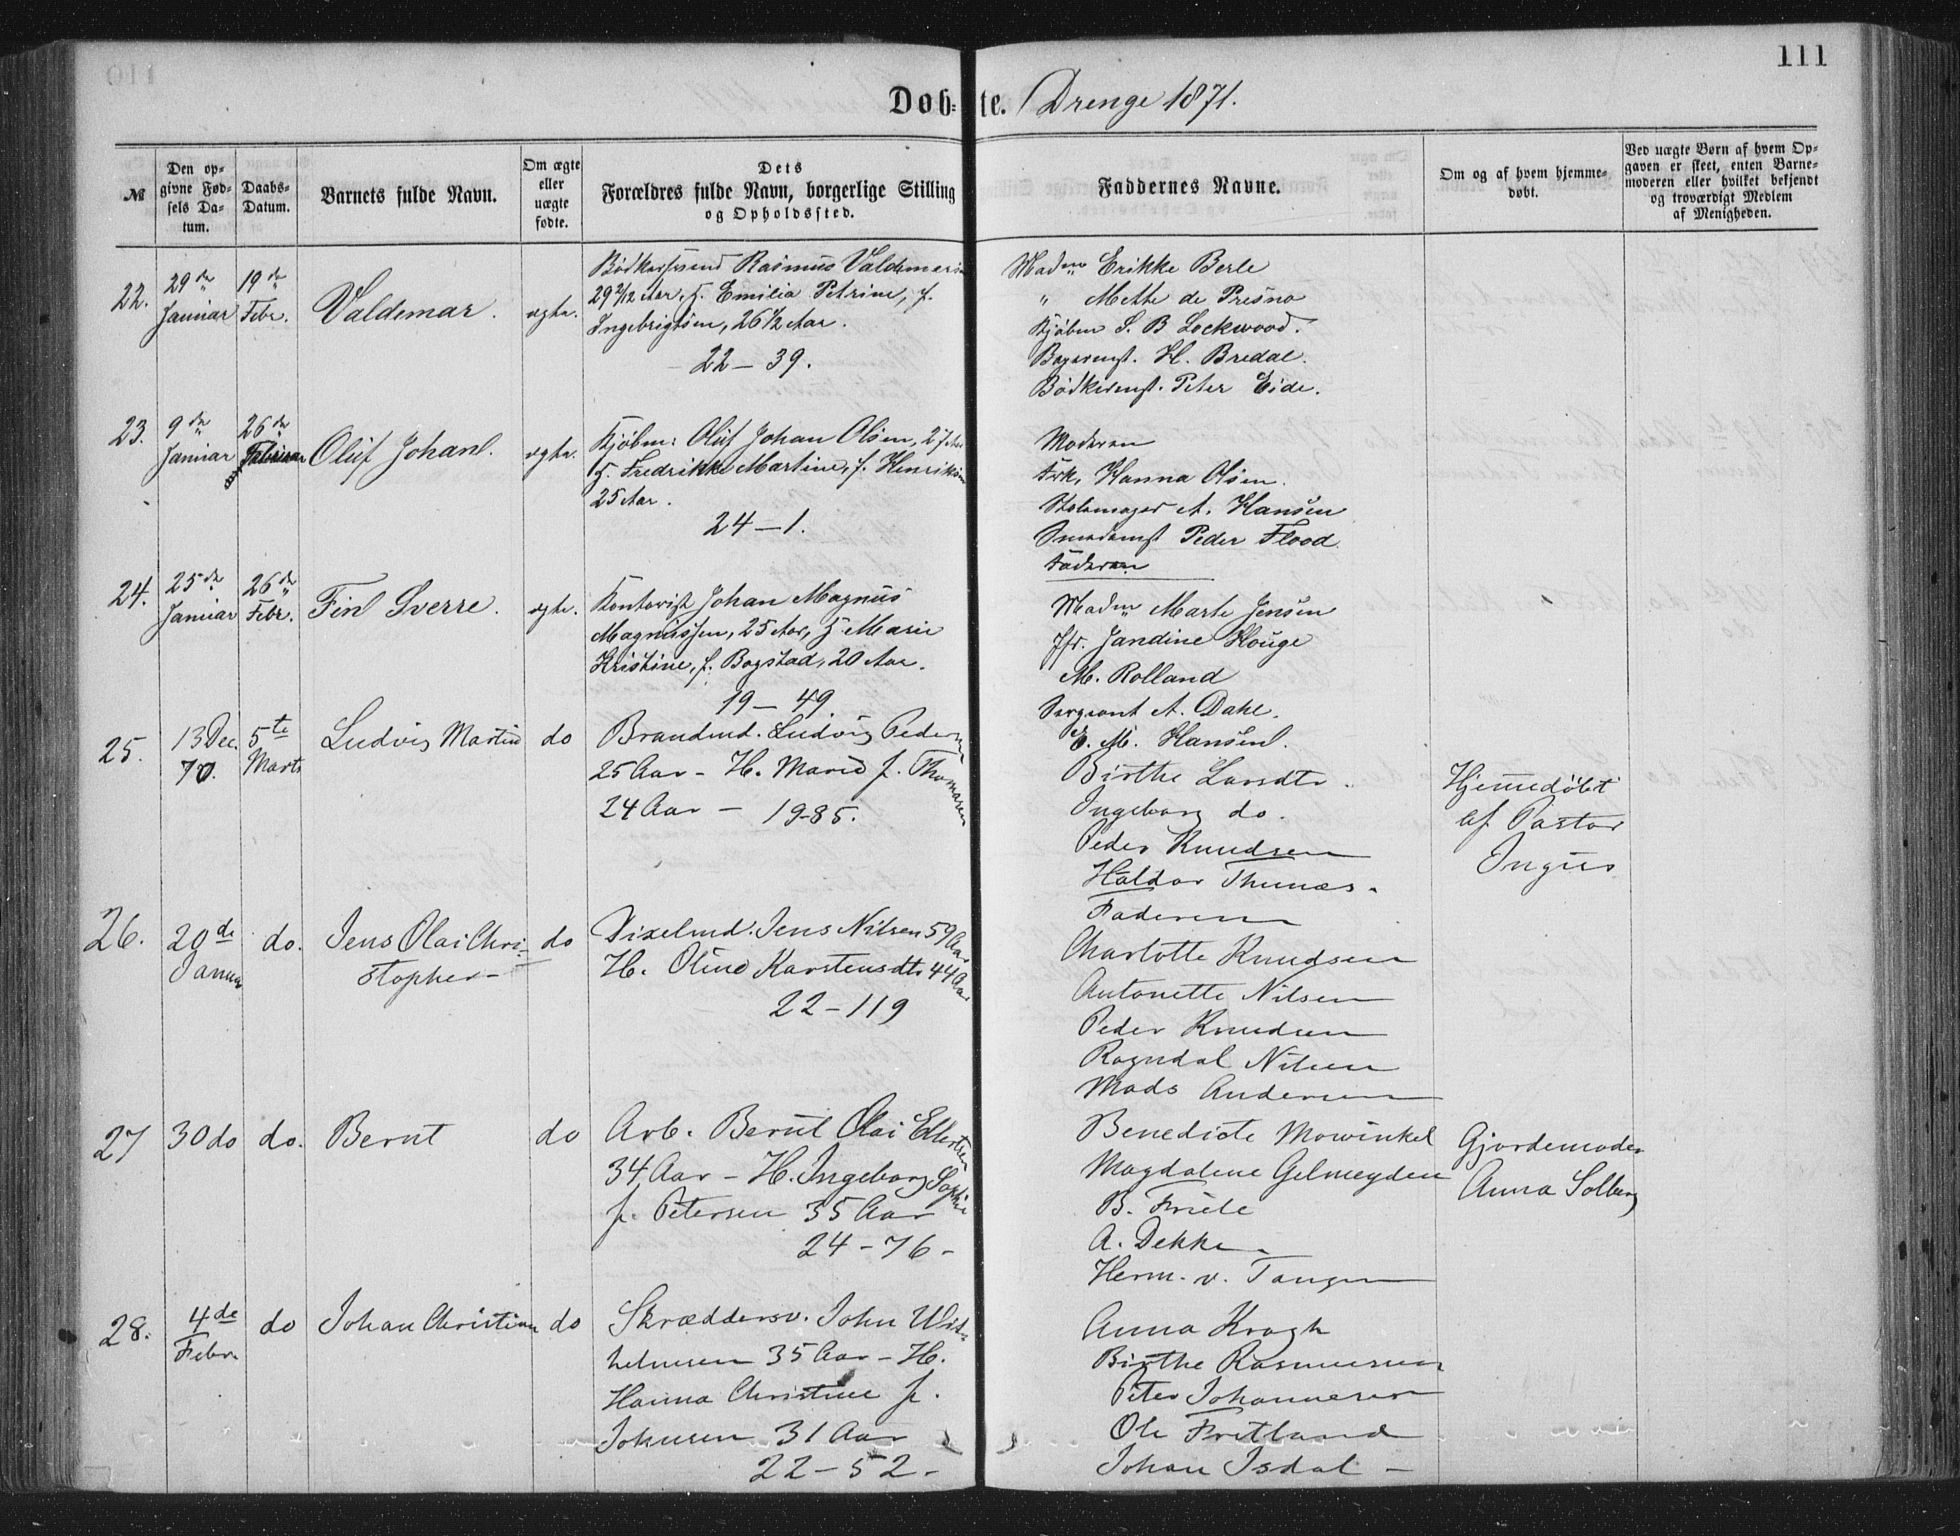 111
Døb-te. Drenge 1871.
№
Den op-
givne Fød-
sels Da-
tum.
Daabs-
Datum.
Barnets fulde Navn.
Om ægte
eller
uægte
fødte.
Dets
Forældres fulde Navn, borgerlige Stilling
og Opholdssted.
Faddernes Navne.
Om og af hvem hjemme-
døbt.
Ved uægte Børn af hvem Op-
gaven er skeet, enten Barne-
moderen eller hvilket bekjendt
og troværdigt Medlem
af Menigheden.
22.
29de
Januar
19de
Febr.
Valdemar.
ægte.
Bødkersvend Rasmus Valdemar
29 2/12 Aar, H. Emilia Petrine, f.
Ingebrigtsen, 26 1/2 Aar.
22 – 39.
Madm Erikke Berle
" Mette de Presno
Kjøbm S. B Lockwood.
Bagermst. H. Bredal.
Bødkermst. Peter Eide.
23.
9de
Januar
26de
Februar
Oluf Johan.
ægte.
Kjøbm: Oluf Johan Olsen, 27 Aar
H. Fredrikke Martine, f. Henriksen
25 Aar.
24 – 1.
Moderen
Frk. Hanna Olsen.
Stolemager A. Hansen
Smedemst Peder Flood.
Faderen
24.
25de
Januar
26de
Febr.
Fin Sverre.
ægte.
Kontorist Johan Magnus
Magnussen, 25 Aar, H. Marie
Kristine, f. Bogstad, 20 Aar.
19 – 49.
Madm Marte Jensen
Jfr. Jandine Houge
M. Rolland
Sergeant A. Dahl.
E. M. Hansen.
25.
13 Dec.
70.
5te
Marts
Ludvig Martin
do
Brandmd. Ludvig Pedersen
25 Aar – H. Marie f. Thomasen
24 Aar – 19-85.
Birthe Larsdtr.
Ingeborg do.
Peder Knudsen
Haldor Thunæs.
Faderen
Hjemmedøbt
af Pastor
26.
20de
Januar
do.
Jens Olai Chri-
stopher –
do
Jens Nilsen 59 Aar
H. Oline Karstensdtr 44 Aar
22 – 119
Charlotte Knudsen
Antonette Nilsen
Peder Knudsen
Nilsen
Mads Andersen
27
30 do
do.
Bernt
do
Arb. Bernt Olai Ellertsen
34 Aar – H. Ingeborg Sophie
f. Petersen 35 Aar
24 – 76 –
Benedicte Mowinkel
Magdalene Gelmeyden
B. Friele
A. Dekke
Herm. v. Tangen
Gjordemoder
Anna Solberg
28.
4de
Febr.
do
Johan Christian
do
Skræddersv. John Wil-
helmsen 35 Aar – H.
Hanna Christine f.
Johnsen 31 Aar
22 – 52 –
Anna Krogh
Birthe Rasmussen
Peter Johannesen
Ole Fretland
Johan Isdal –